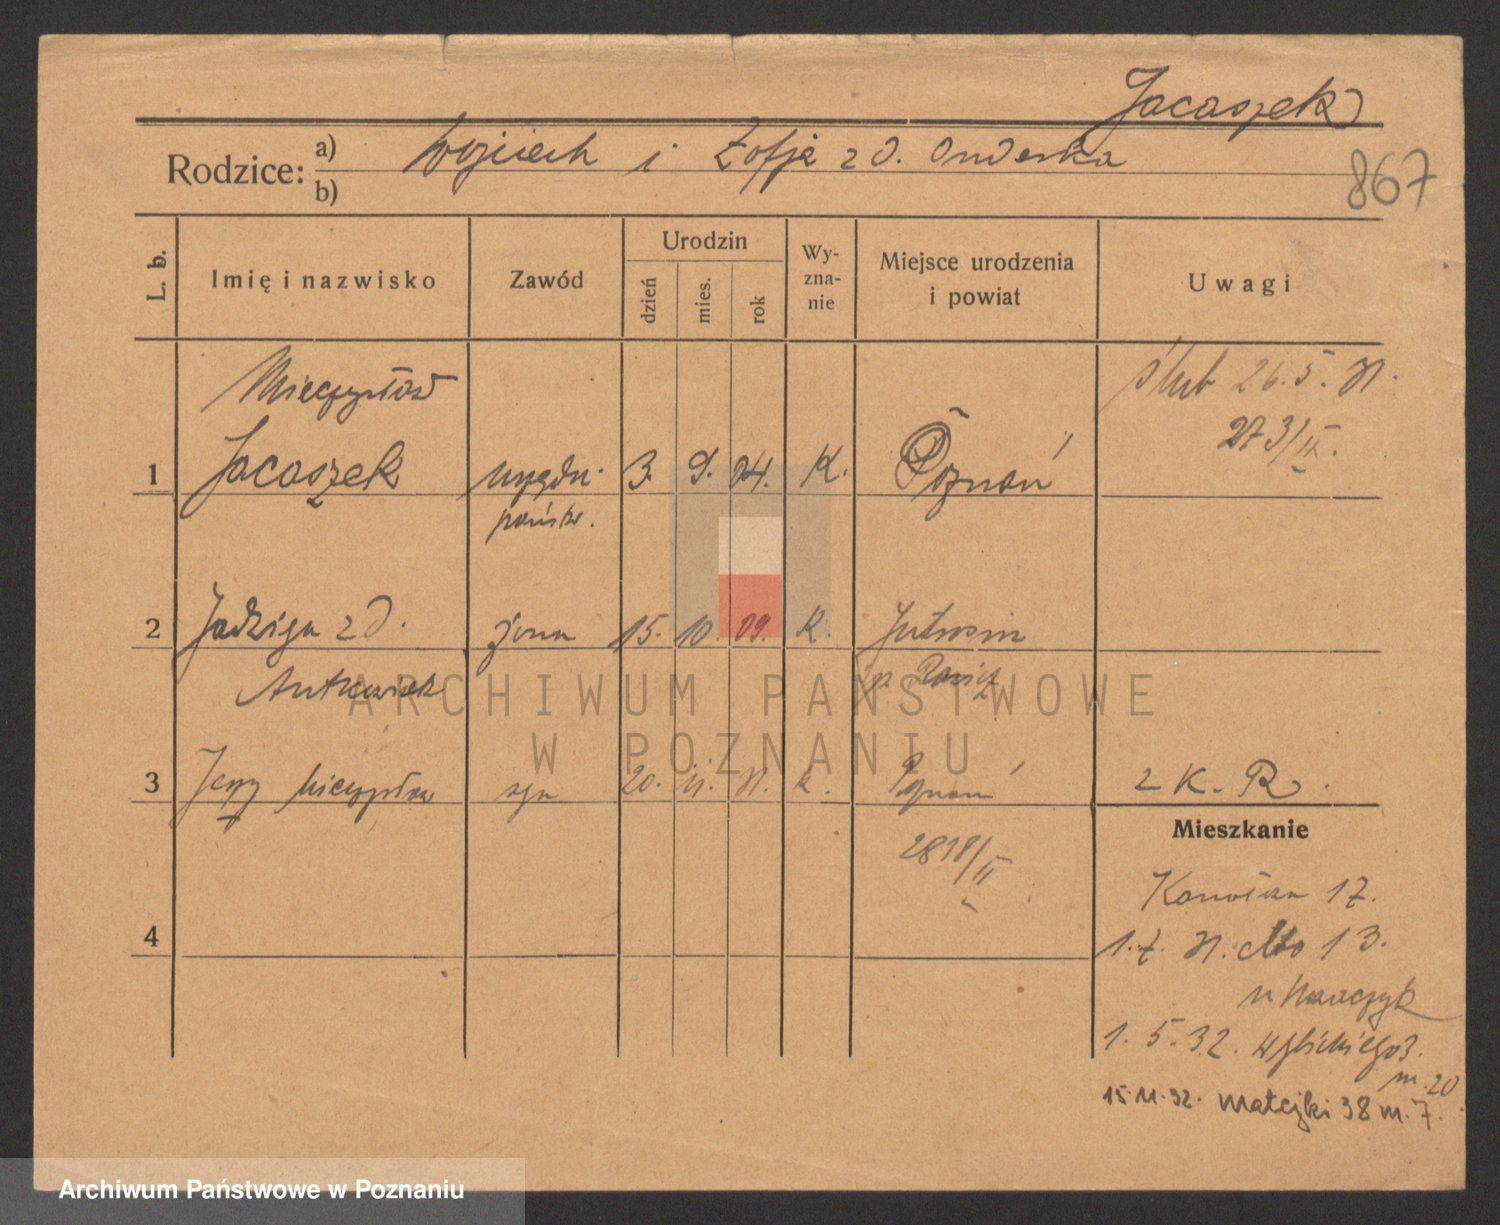 Jacaszek
Rodzice: a) Wojciech i Zofja z d. Onderka
b)
867
L. b.
Imię i nazwisko
Zawód
Urodzin
dzień
mies.
rok
Wy-
zna-
nie
Miejsce urodzenia
i powiat
Uwagi
Mieczysław
ślub 26.5.31.
273/II.
1 Jacaszek urzędn. 3. 9. 04. K. Poznań
państw.
2 Jadwiga z d. żona 15. 10. 09. K. Jutrosin
Antkowiak p. Rawicz
3 Jerzy Mieczysław syn 20. 31. k. Poznań
z K. R.
2818/II
Mieszkanie
4
17.
1.7. 31. 13.
u
1.5.32. Wybickiego 3.
m. 20
15.11.32. Matejki 38 m. 7.
ARCHIWUM PAŃSTWOWE
W POZNANIU
Archiwum Państwowe w Poznaniu